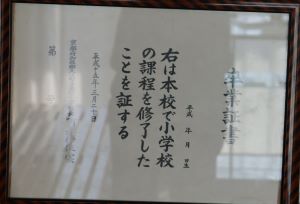 卒業証書
平成　年　月　日生
右は本校で小学校
の課程を修了した
ことを証する
平成十五年三月二十日
第